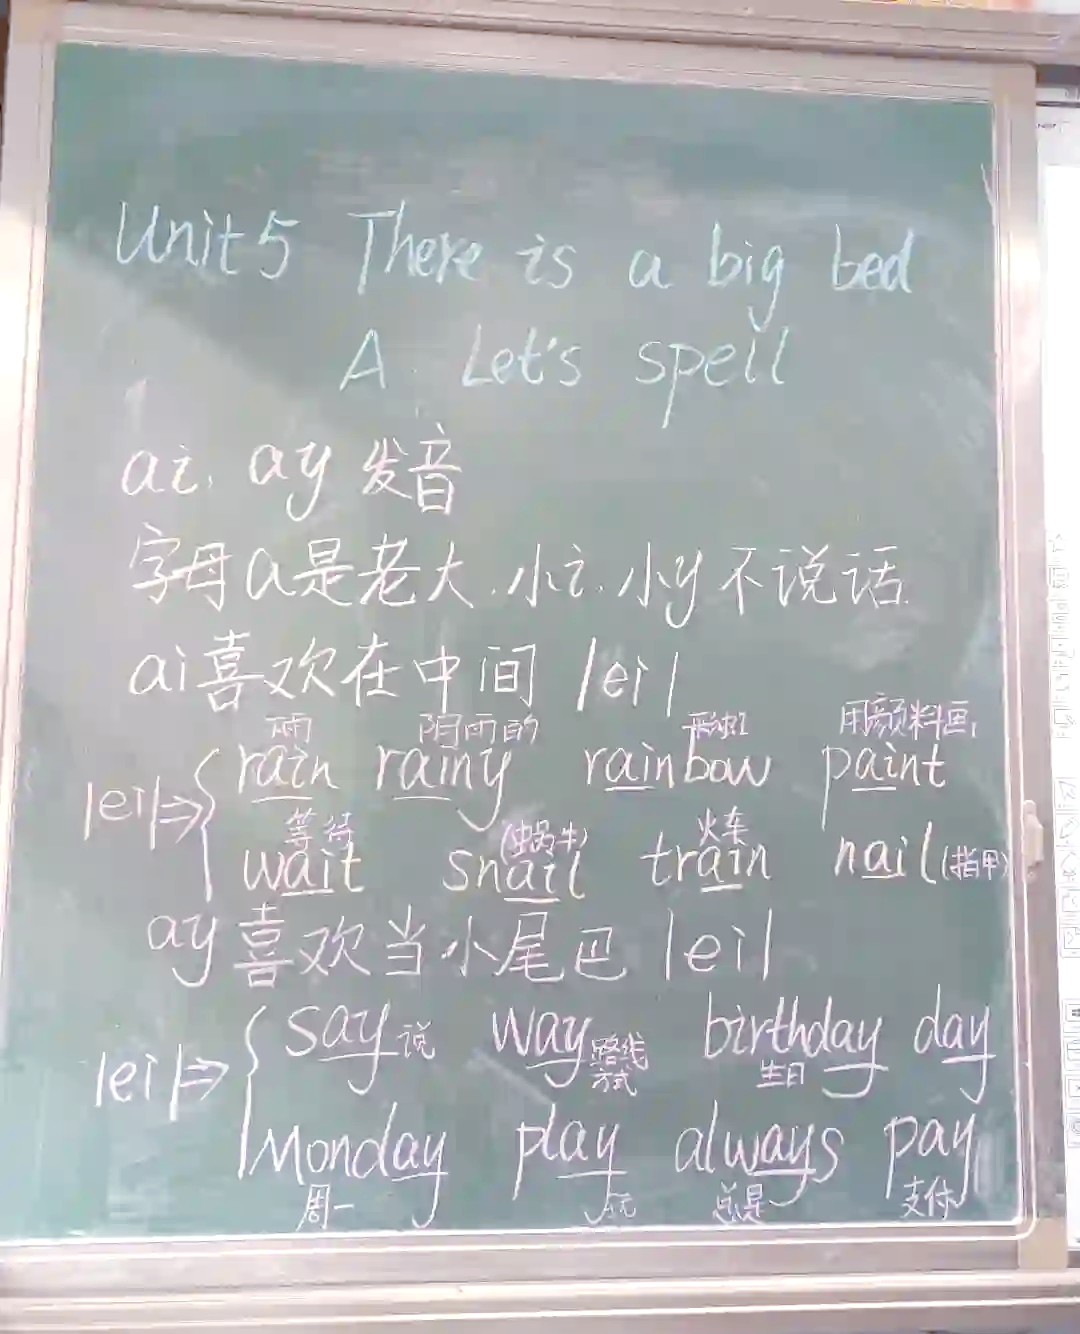 Unit 5 There is a big bed
A Let's spell
ai, ay 发音
字母a是老大.小i.小y不说话.
ai喜欢在中间 /ei/
雨 阴雨的 彩虹 用颜料画
/ei/⇒{ rain rainy rainbow paint
等待 (蜗牛) 火车
wait snail train nail(指甲)
ay喜欢当小尾巴 /ei/
/ei/⇒{ say说 way路线 birthday day
方式 生日
Monday play always pay
周一 玩 总是 支付